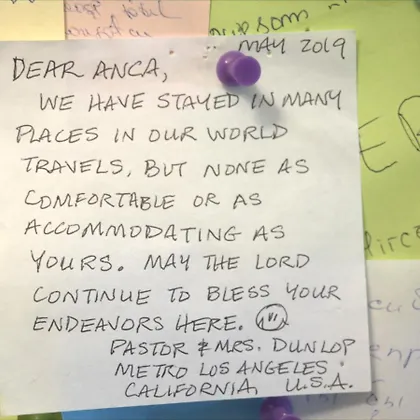 MAY 2019
DEAR ANCA,
WE HAVE STAYED IN MANY
PLACES IN OUR WORLD
TRAVELS, BUT NONE AS
COMFORTABLE OR AS
ACCOMMODATING AS
YOURS. MAY THE LORD
CONTINUE TO BLESS YOUR
ENDEAVORS HERE.
PASTOR & MRS. DUNLOP
METRO LOS ANGELES
CALIFORNIA, U.S.A.